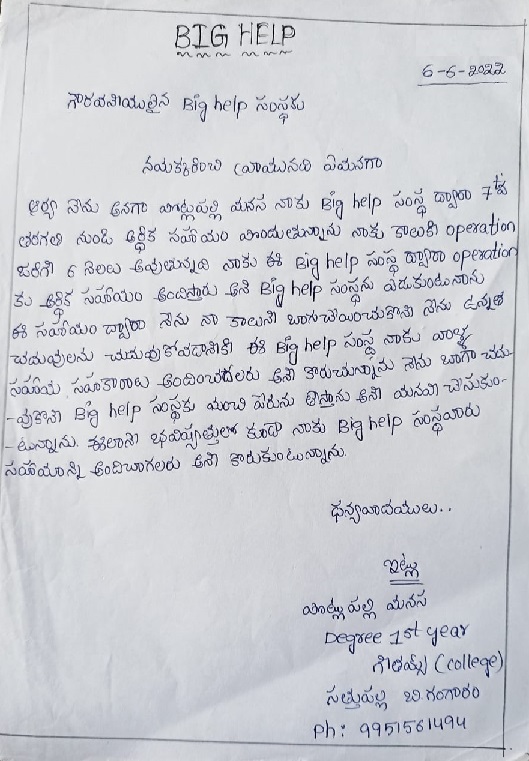 BIG HELP
6-6-2022
గౌరవనీయులైన Big help సంస్థకు
నమస్కరించి వ్రాయునది ఏమనగా
ఆర్యా నేను అనగా పొట్లపల్లి మానస నాకు Big help సంస్థ ద్వారా 7th వ
తరగతి నుండి ఆర్థిక సహాయం పొందుతున్నాను నాకు కాలుకి operation
జరిగి 6 నెలలు అవుతున్నది నాకు ఈ Big help సంస్థ ద్వారా operation
కు ఆర్థిక సహాయం అందిస్తారు అని Big help సంస్థను వేడుకుంటునాను
ఈ సహాయం ద్వారా నేను నా కాలుని బాగుచేయించుకొని నేను ఉన్నత
చదువులను చదువుకోవడానికి ఈ Big help సంస్థ నాకు
సహాయ సహకారాలు అందించగలరు అని కోరుచున్నాను నేను బాగా చదు-
-వుకొని Big help సంస్థకు మంచి పేరును తెస్తాను అని మనవి చేసుకుం-
-టున్నాను. ఈలాగే భవిష్యత్తులో కూడా నాకు Big help సంస్థవారు
సహాయాన్ని అందించాగలరు అని కోరుకుంటున్నాను.
ధన్యవాదములు..
ఇట్లు
పొట్లపల్లి మానస
Degree 1st year
(college)
సత్తుపల్లి
Ph: 9951561494